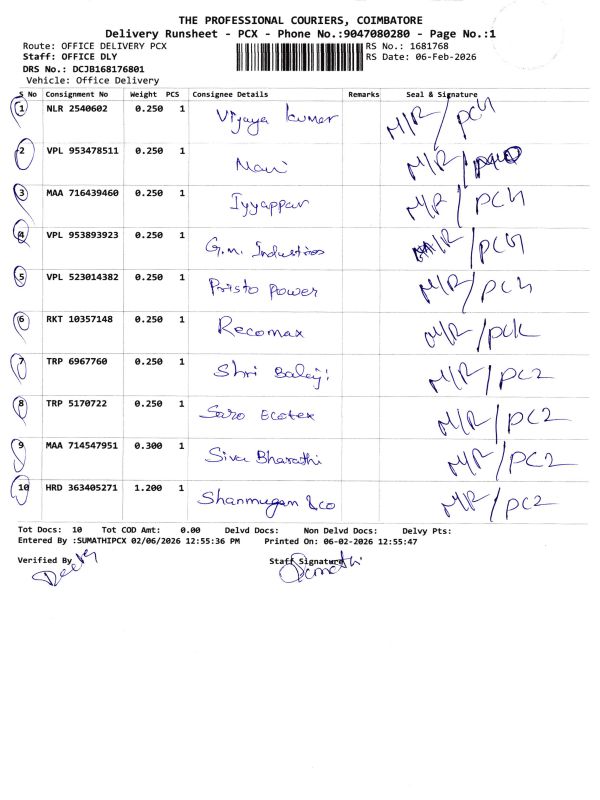 THE PROFESSIONAL COURIERS, COIMBATORE
Delivery Runsheet - PCX - Phone No.:9047080280 - Page No.:1
Route: OFFICE DELIVERY PCX RS No.: 1681768
Staff: OFFICE DLY RS Date: 06-Feb-2026
DRS No.: DCJB168176801
Vehicle: Office Delivery
S No Consignment No Weight PCS Consignee Details Remarks Seal & Signature
1 NLR 2540602 0.250 1 Vijaya kumar M/R / PCH
2 VPL 953478511 0.250 1 Mani M/R /
3 MAA 716439460 0.250 1 Iyyappan M/R / PCH
4 VPL 953893923 0.250 1 G.M. Industries M/R / PCH
5 VPL 523014382 0.250 1 Pristo power M/R / PCH
6 RKT 10357148 0.250 1 Recomax M/R / PCK
7 TRP 6967760 0.250 1 Shri Balaji M/R / PC2
8 TRP 5170722 0.250 1 Saro Ecotex M/R / PC2
9 MAA 714547951 0.300 1 Siva Bharathi M/R / PC2
10 HRD 363405271 1.200 1 Shanmugam & co M/R / PC2
Tot Docs: 10 Tot COD Amt: 0.00 Delvd Docs: Non Delvd Docs: Delvy Pts:
Entered By :SUMATHIPCX 02/06/2026 12:55:36 PM Printed On: 06-02-2026 12:55:47
Verified By Staff Signature